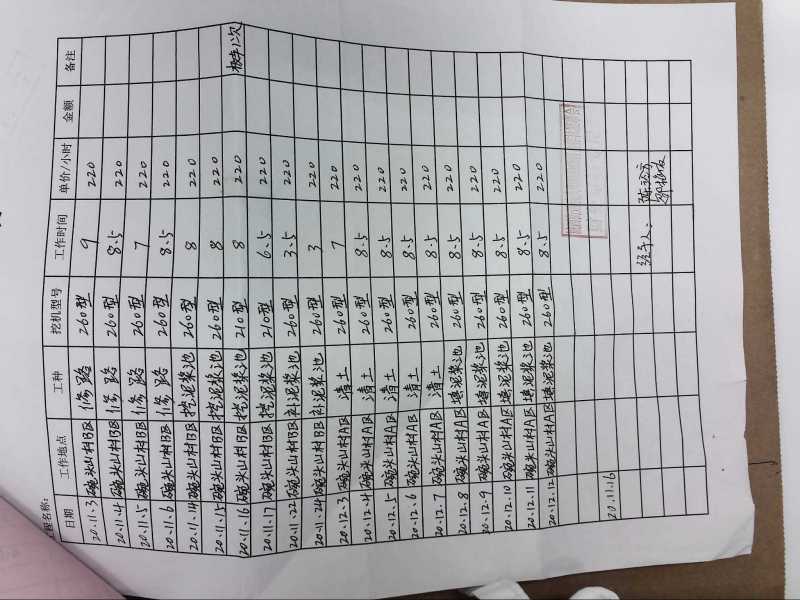 工程名称:
日期 工作地点 工种 挖机型号 工作时间 单价/小时 金额 备注
20.11.3 碗头山村B区 修路 260型 9 220
20.11.4 碗头山村B区 修路 260型 8.5 220
20.11.5 碗头山村B区 修路 260型 7 220
20.11.6 碗头山村B区 修路 260型 8.5 220
20.11.14 碗头山村B区 挖泥浆池 260型 8 220
20.11.15 碗头山村B区 挖泥浆池 260型 8 220
20.11.16 碗头山村B区 挖泥浆池 210型 8 220 板车1次
20.11.17 碗头山村B区 挖泥浆池 210型 6.5 220
20.11.22 碗头山村B区 补泥浆池 260型 3.5 220
20.11.24 碗头山村B区 补泥浆池 260型 3 220
20.12.3 碗头山村A区 清土 260型 7 220
20.12.4 碗头山村A区 清土 260型 8.5 220
20.12.5 碗头山村A区 清土 260型 8.5 220
20.12.6 碗头山村A区 清土 260型 8.5 220
20.12.7 碗头山村A区 清土 260型 8.5 220
20.12.8 碗头山村A区 填泥浆池 260型 8.5 220
20.12.9 碗头山村A区 填泥浆池 260型 8.5 220
20.12.10 碗头山村A区 填泥浆池 260型 8.5 220
20.12.11 碗头山村A区 填泥浆池 260型 8.5 220
20.12.12 碗头山村A区 填泥浆池 260型 8.5 220
20.11.16 经手人: